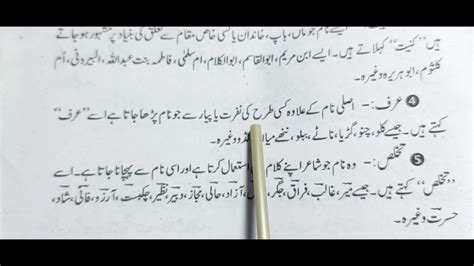 ہیں ’’کنیت‘‘ کہلاتے ہیں۔ ایسے نام جو ماں، باپ، خاندان یا کسی خاص مقام سے تعلق کی بنیاد پر مشہور ہو جاتے
ہیں۔ جیسے ابن مریم، ابوالقاسم، ابوالکلام، ام سلمیٰ، فاطمہ بنت عبداللہ، البیرونی، اُم
کلثوم، ابو ہریرہ وغیرہ۔
❹ عرف:- اصلی نام کے علاوہ کسی طرح کی نفرت یا پیار سے جو نام پڑ جاتا ہے اسے ’’عرف‘‘
کہتے ہیں۔ جیسے کلو، چنو، گڑیا، ناٹے، ببلو، ننھے میاں وغیرہ۔
❺ تخلص:- وہ نام جو شاعر اپنے کلام استعمال کرتا ہے اور اسی نام سے پہچانا جاتا ہے اسے
’’تخلص‘‘ کہتے ہیں۔ جیسے میر، غالب، فراق، جگر، آزاد، حالی، مجاز، دبیر، نظیر، چکبست، آرزو، فانی، شاد،
حسرت وغیرہ۔